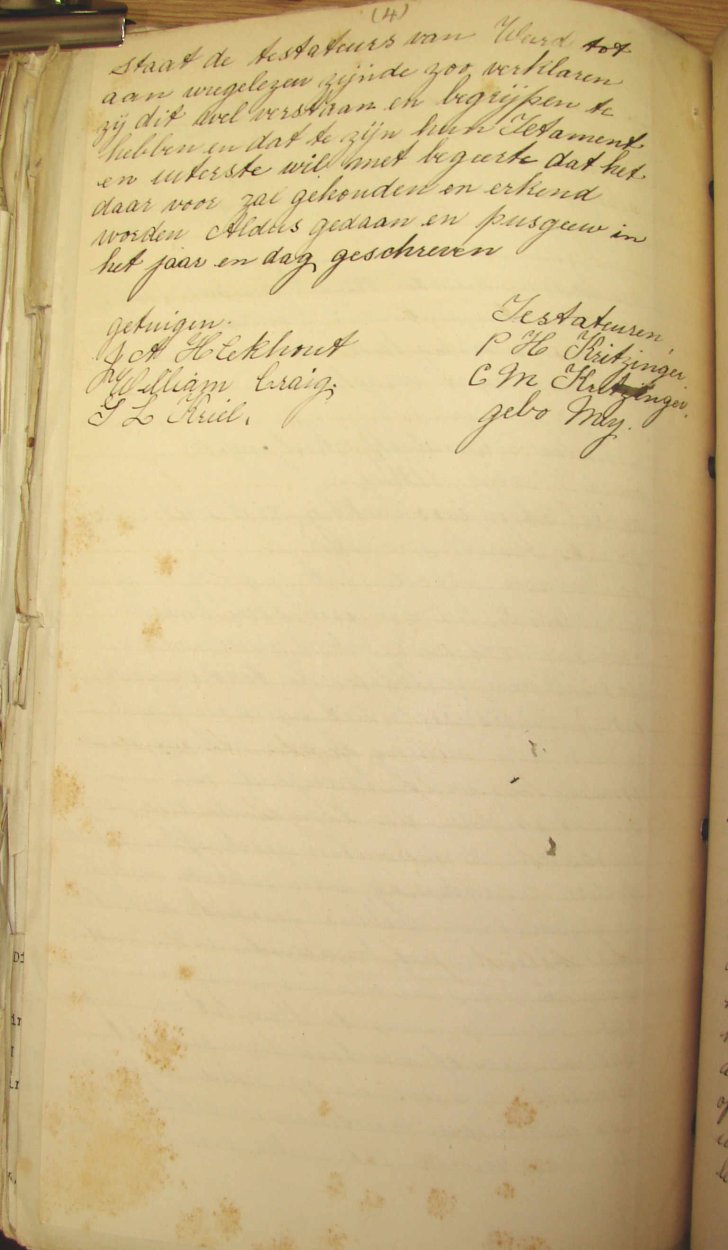 (4)
staat de testateurs van Word tot
aan wugelezen zijnde zoo verklaren
zij dit wel verstaan en begrijpen te
hebben en dat te zijn hun Tetament
en uiterste wil met begeerte dat het
daar voor zal gehouden en erkend
worden Aldus gedaan en in
het jaar en dag geschreven
getuigen. Testateuren
J A H Ekhout P H Kritzinger
William Craig. C M Kritzinger.
S L Kriel. gebo Mey.